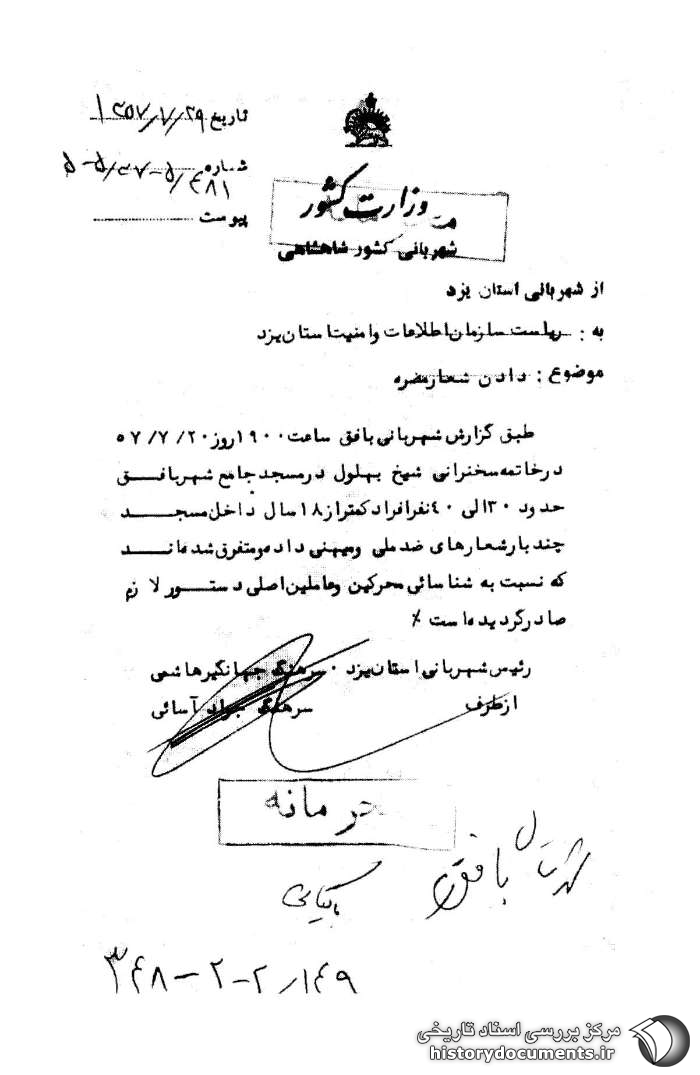 تاریخ ۱۳۵۷/۷/۲۹
شماره ۵-۵/۳۷-۵/۴۸۱
پیوست
وزارت کشور
شهربانی کشور شاهنشاهی
از شهربانی استان یزد
به : ریاست سازمان اطلاعات و امنیت استان یزد
موضوع : دادن شعار مضره
طبق گزارش شهربانی بافق ساعت ۱۹۰۰ روز ۲۰/ ۷/ ۵۷
در خاتمه سخنرانی شیخ بهلول در مسجد جامع شهر بافق
حدود ۳۰ الی ۴۰ نفر افراد کمتر از ۱۸ سال داخل مسجد
چند بار شعارهای ضد ملی و میهنی داده و متفرق شده‌اند
که نسبت به شناسائی محرکین و عاملین اصلی دستور لازم
صادر گردیده است ٪
رئیس شهربانی استان یزد . سرهنگ جهانگیر هاشمی
از طرف سرهنگ جواد آسائی
محرمانه
بافق
بایگانی
۳۴۸-۲-۲/۱۴۹
مرکز بررسی اسناد تاریخی
historydocuments.ir